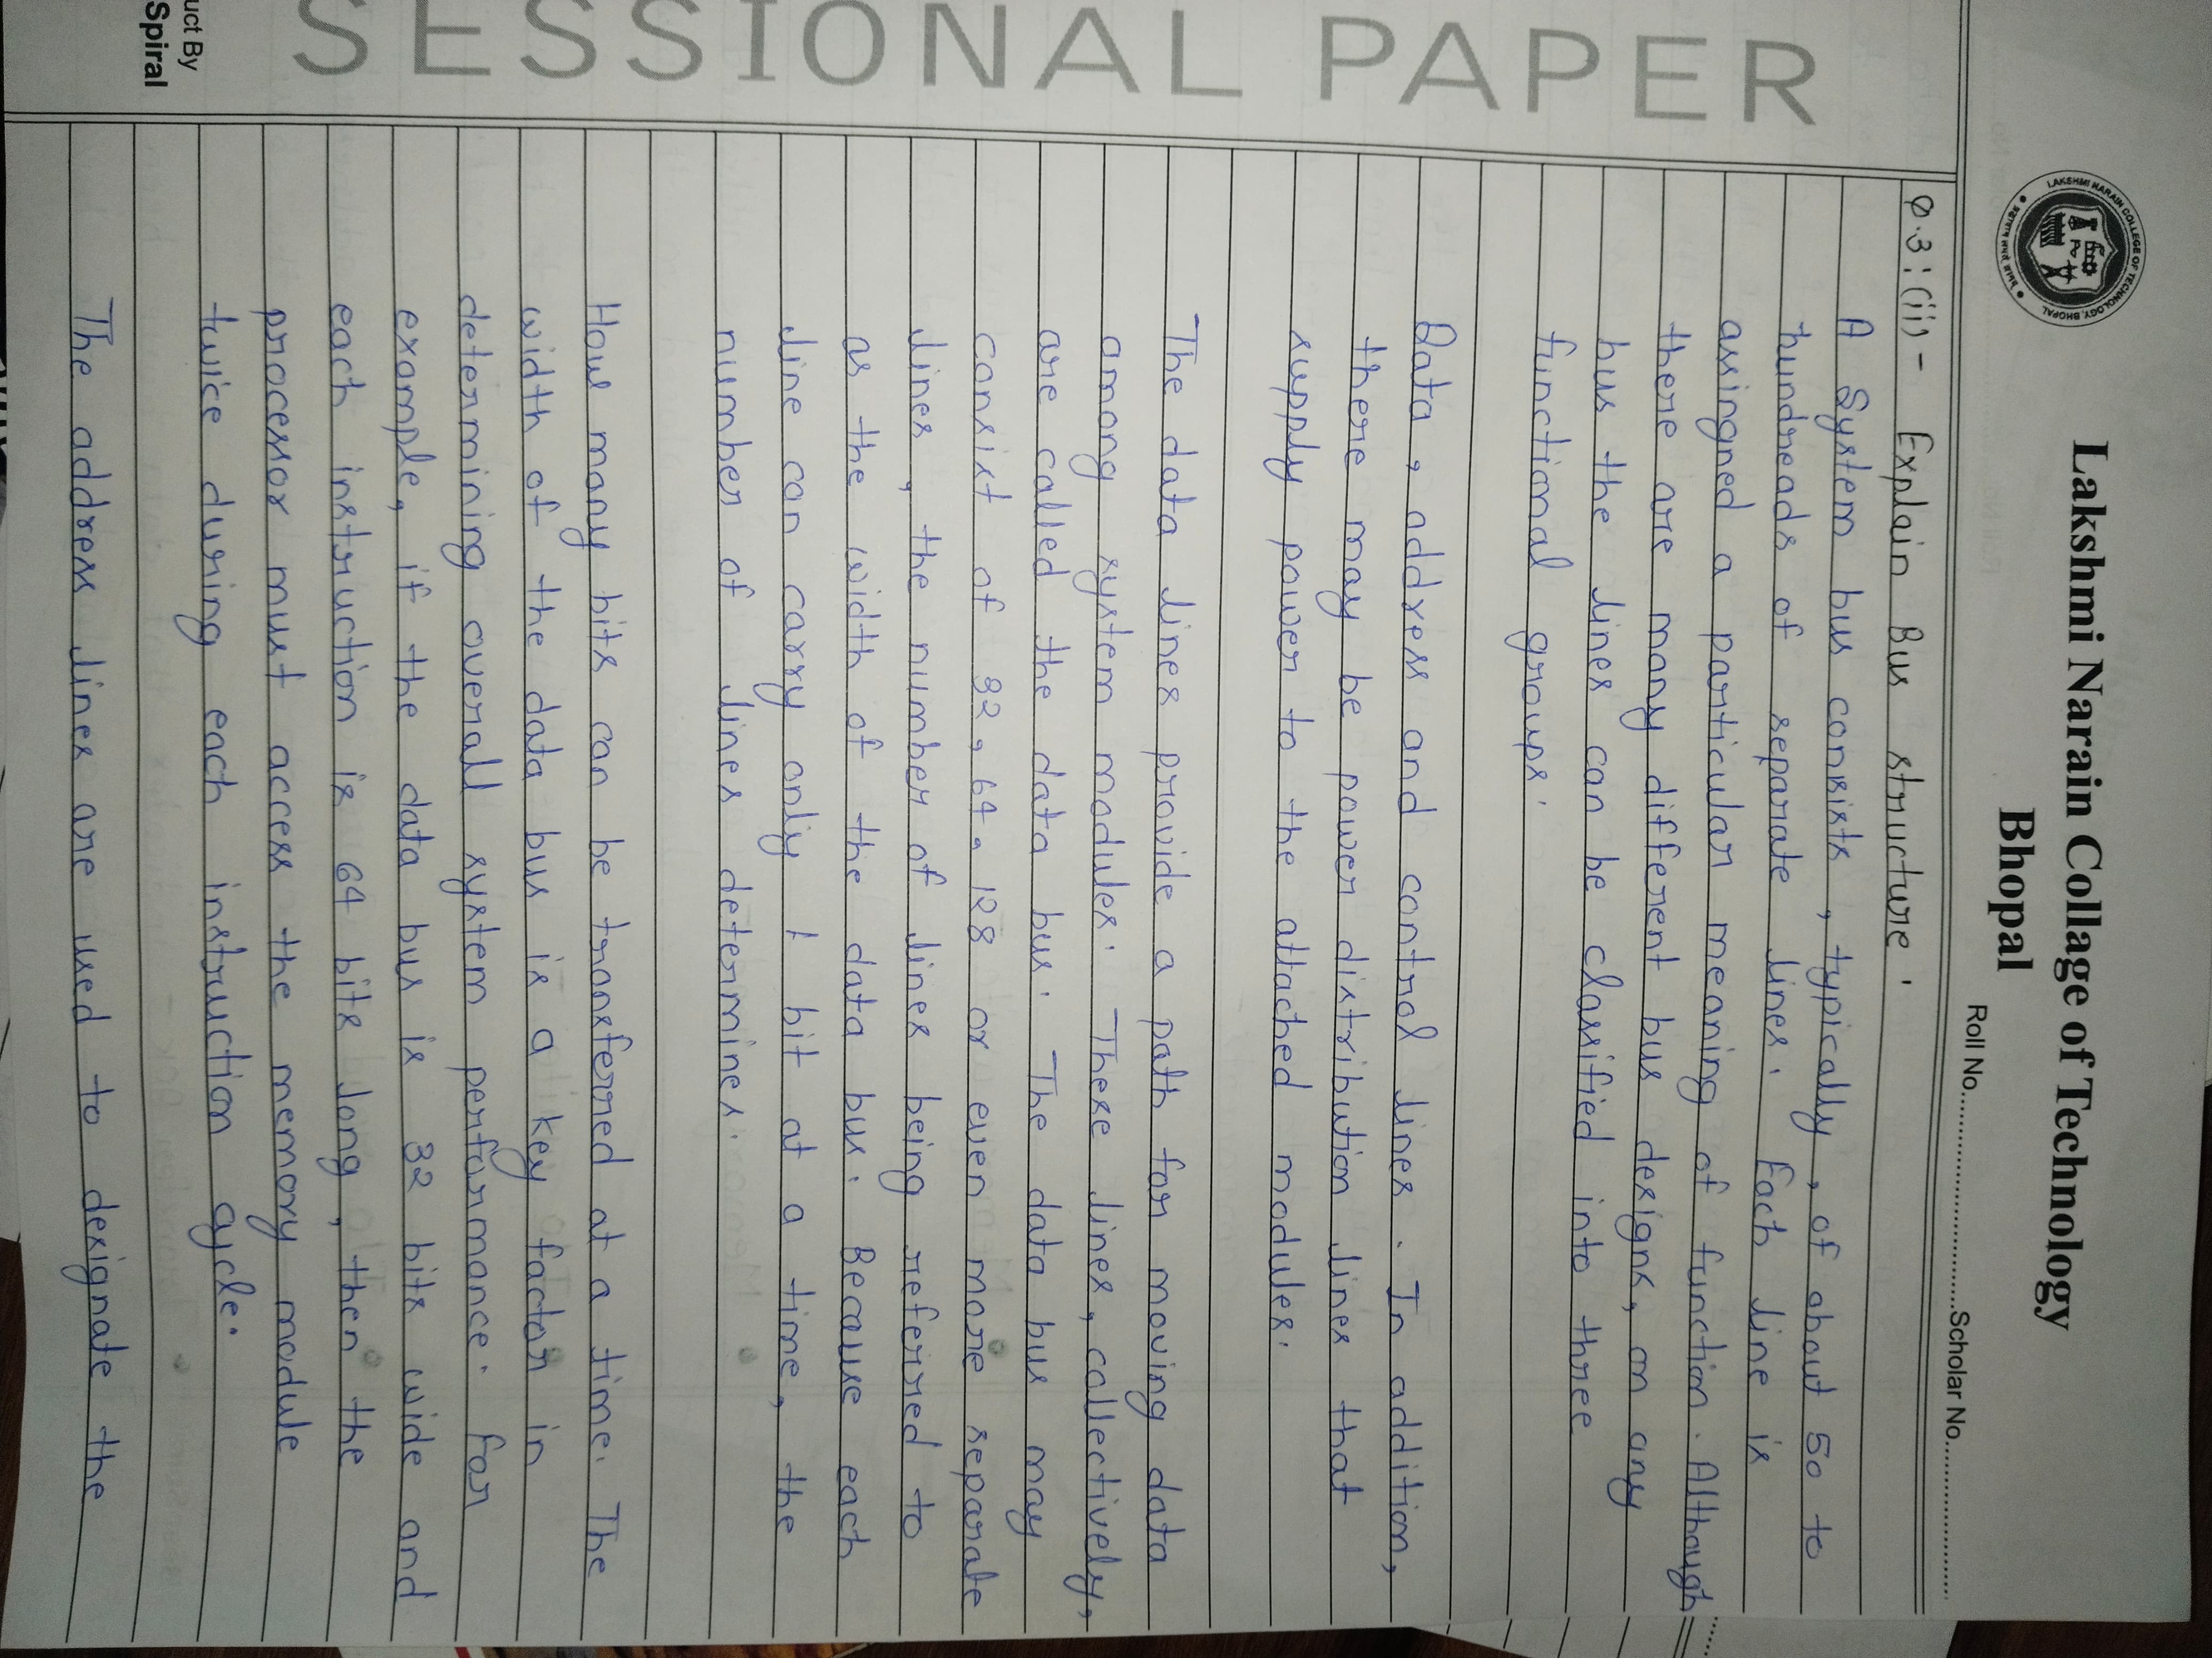 LAKSHMI NARAIN COLLEGE OF TECHNOLOGY, BHOPAL
Lakshmi Narain Collage of Technology
Bhopal
Roll No..............................Scholar No......................
SESSIONAL PAPER
Q.3:(ii)- Explain Bus structure.
A System bus consists, typically, of about 50 to
hundreads of separate lines. Each line is
assingned a particular meaning of function. Although
there are many different bus designs, on any
bus the lines can be classified into three
functional groups.
Data, address and control lines. In addition,
there may be power distribution lines that
supply power to the attached modules.
The data lines provide a path for moving data
among system modules. These lines, collectively,
are called the data bus. The data bus may
consist of 32, 64, 128 or even more separate
lines, the number of lines being referred to
as the width of the data bus. Because each
line can carry only 1 bit at a time, the
number of lines determines.
How many bits can be transferred at a time. The
width of the data bus is a key factor in
determining overall system performance. For
example, if the data bus is 32 bits wide and
each instruction is 64 bits long, then the
processor must access the memory module
twice during each instruction cycle.
The address lines are used to designate the
uct By
Spiral